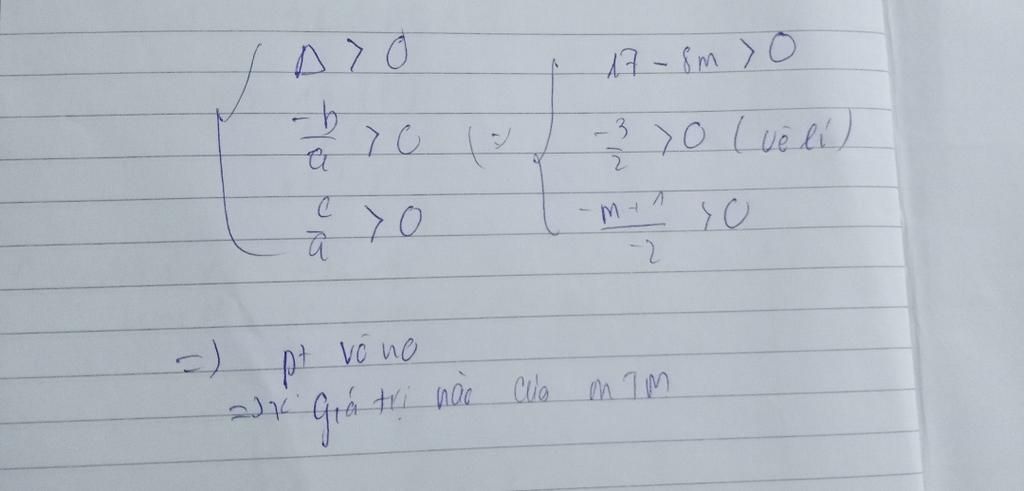 Δ > 0
-b/a > 0
c/a > 0
<=>
17 - 8m > 0
-3/2 > 0 (vô lí)
-m+1/-2 > 0
=> pt vô no
=> giá trị nào của m TM